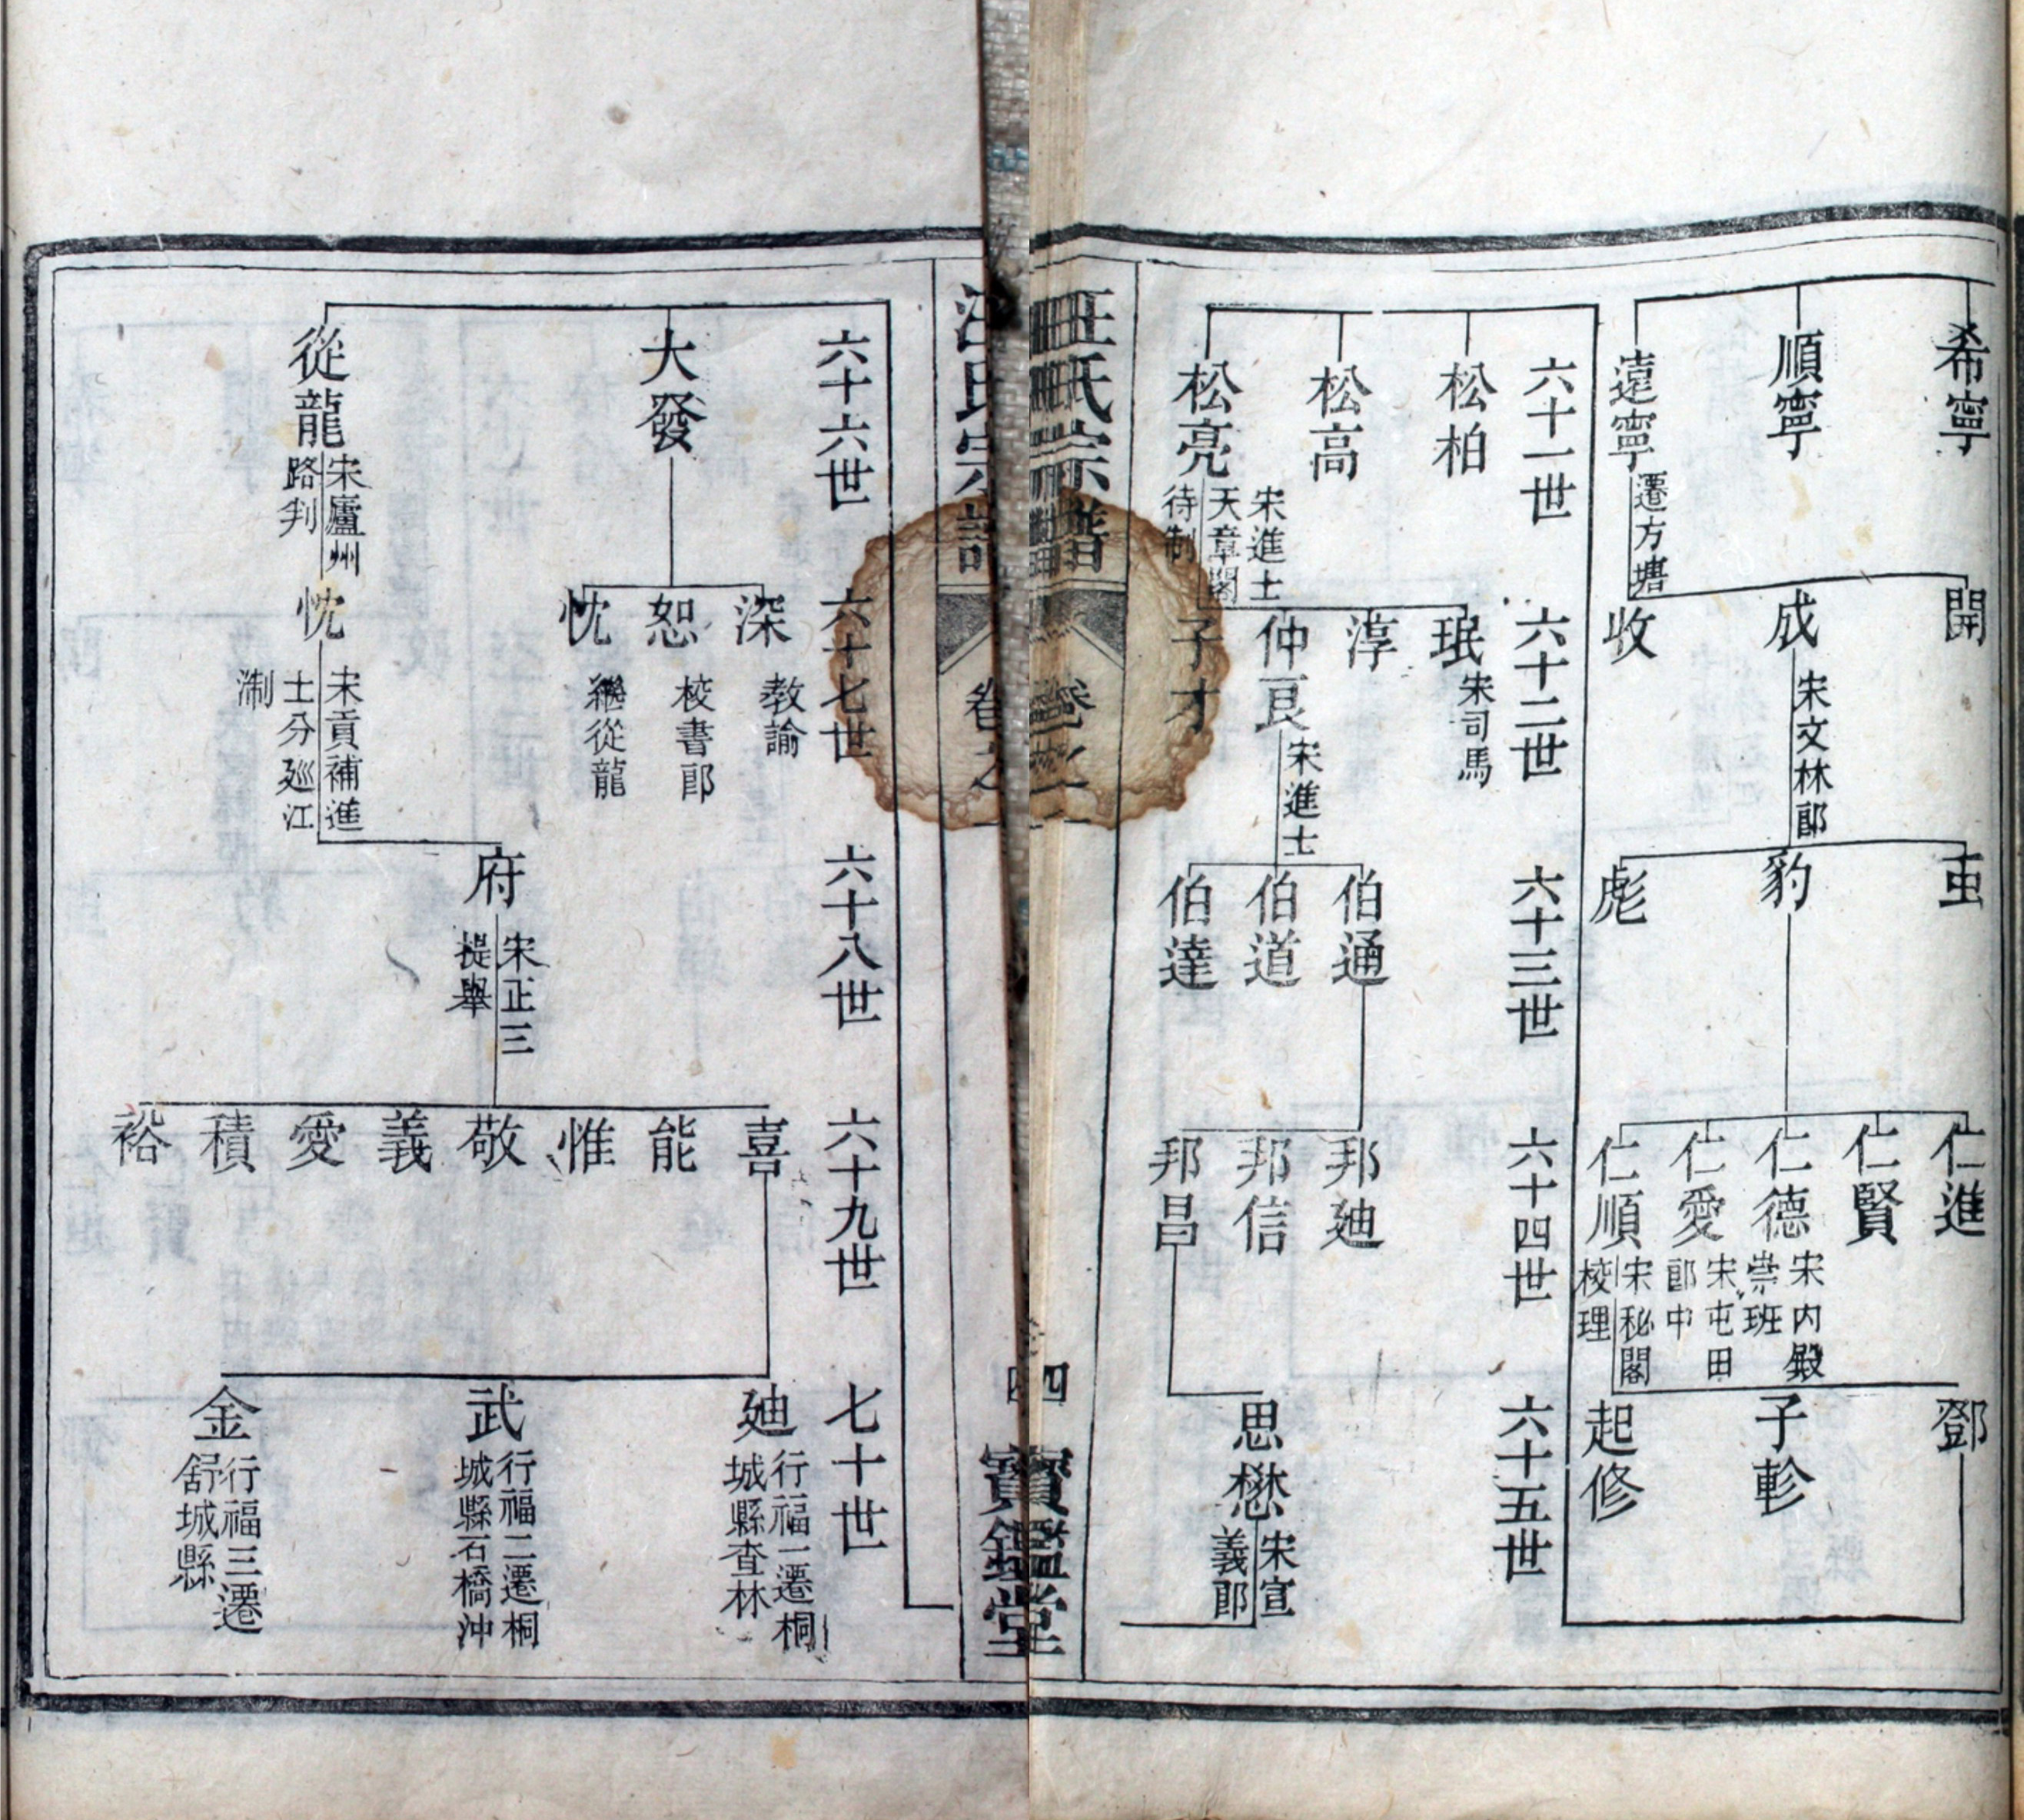 希寧
順寧
遠寧 遷方塘
開
成 宋文林郎
收
豹
彪
仁進
仁賢
仁德 宋內殿崇班
仁愛 宋屯田郎中
仁順 宋秘閣校理
鄧
子軫
起修
六十一世
六十二世
六十三世
六十四世
六十五世
松柏
松高
松亮 宋進士天章閣待制
珉 宋司馬
淳
仲良 宋進士
子才
伯通
伯道
伯達
邦廸
邦信
邦昌
思懋 宋宣義郎
汪氏宗譜
卷之
四
寶鑑堂
六十六世
六十七世
六十八世
六十九世
七十世
大發
從龍 宋廬州路判
深 教諭
恕 校書郎
忱 繼從龍
忱 宋貢補進士分廵江淛
府 宋正三提舉
喜
能
惟
敬
義
愛
積
裕
廸 行福一遷桐城縣查林
武 行福二遷桐城縣石橋沖
金 行福三遷舒城縣